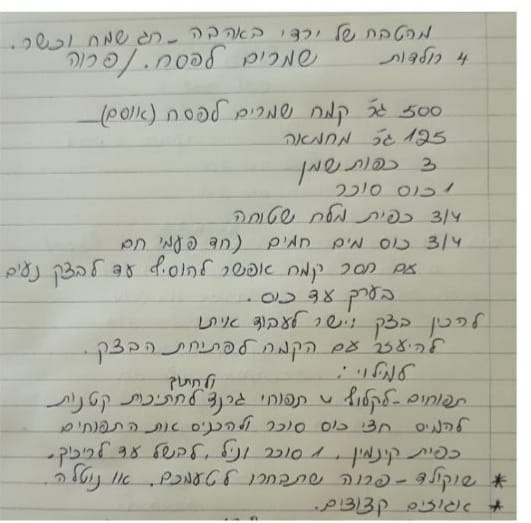 מהטבח של ירדי באהבה - חג שמח וכשר.
4 רולדות שמרים לפסח. /פרווה
500 גר' קמח שמרים לפסח (אוסם)
125 גר' מחמאה
3 כפות שמן
1 כוס סוכר
3/4 כפית מלח שטוחה
3/4 כוס מים חמים (חד פעמי חם
עם חסר קמח אפשר להוסיף עד לבצק נעים
בערך עד כוס.
להכין בצק וישר לעבוד איתו
להיעזר עם הקמח לפתיחת הבצק.
למילוי:
ולחתוך
תפוחים - לקלוף 4 תפוחי גרנד לחתיכות קטנות
להמיס חצי כוס סוכר ולהכניס את התפוחים
כפית קינמון, 1 סוכר וניל, לבשל עד לריכוך.
* שוקולד - פרווה שתבחרו לטעמכם. או נוטלה.
* אגוזים קצוצים.